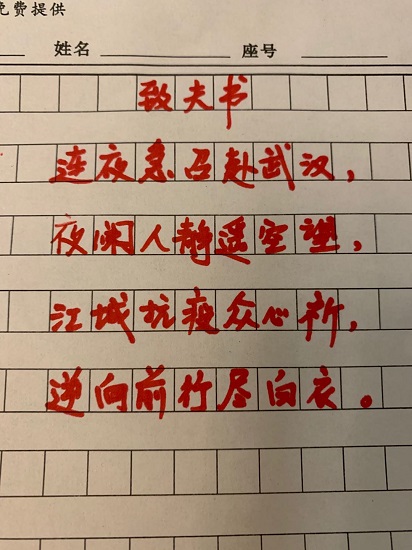 免费提供
姓名 座号
致夫书
连夜急召赴武汉，
夜阑人静遥空望，
江城抗疫众心祈，
逆向前行尽白衣。